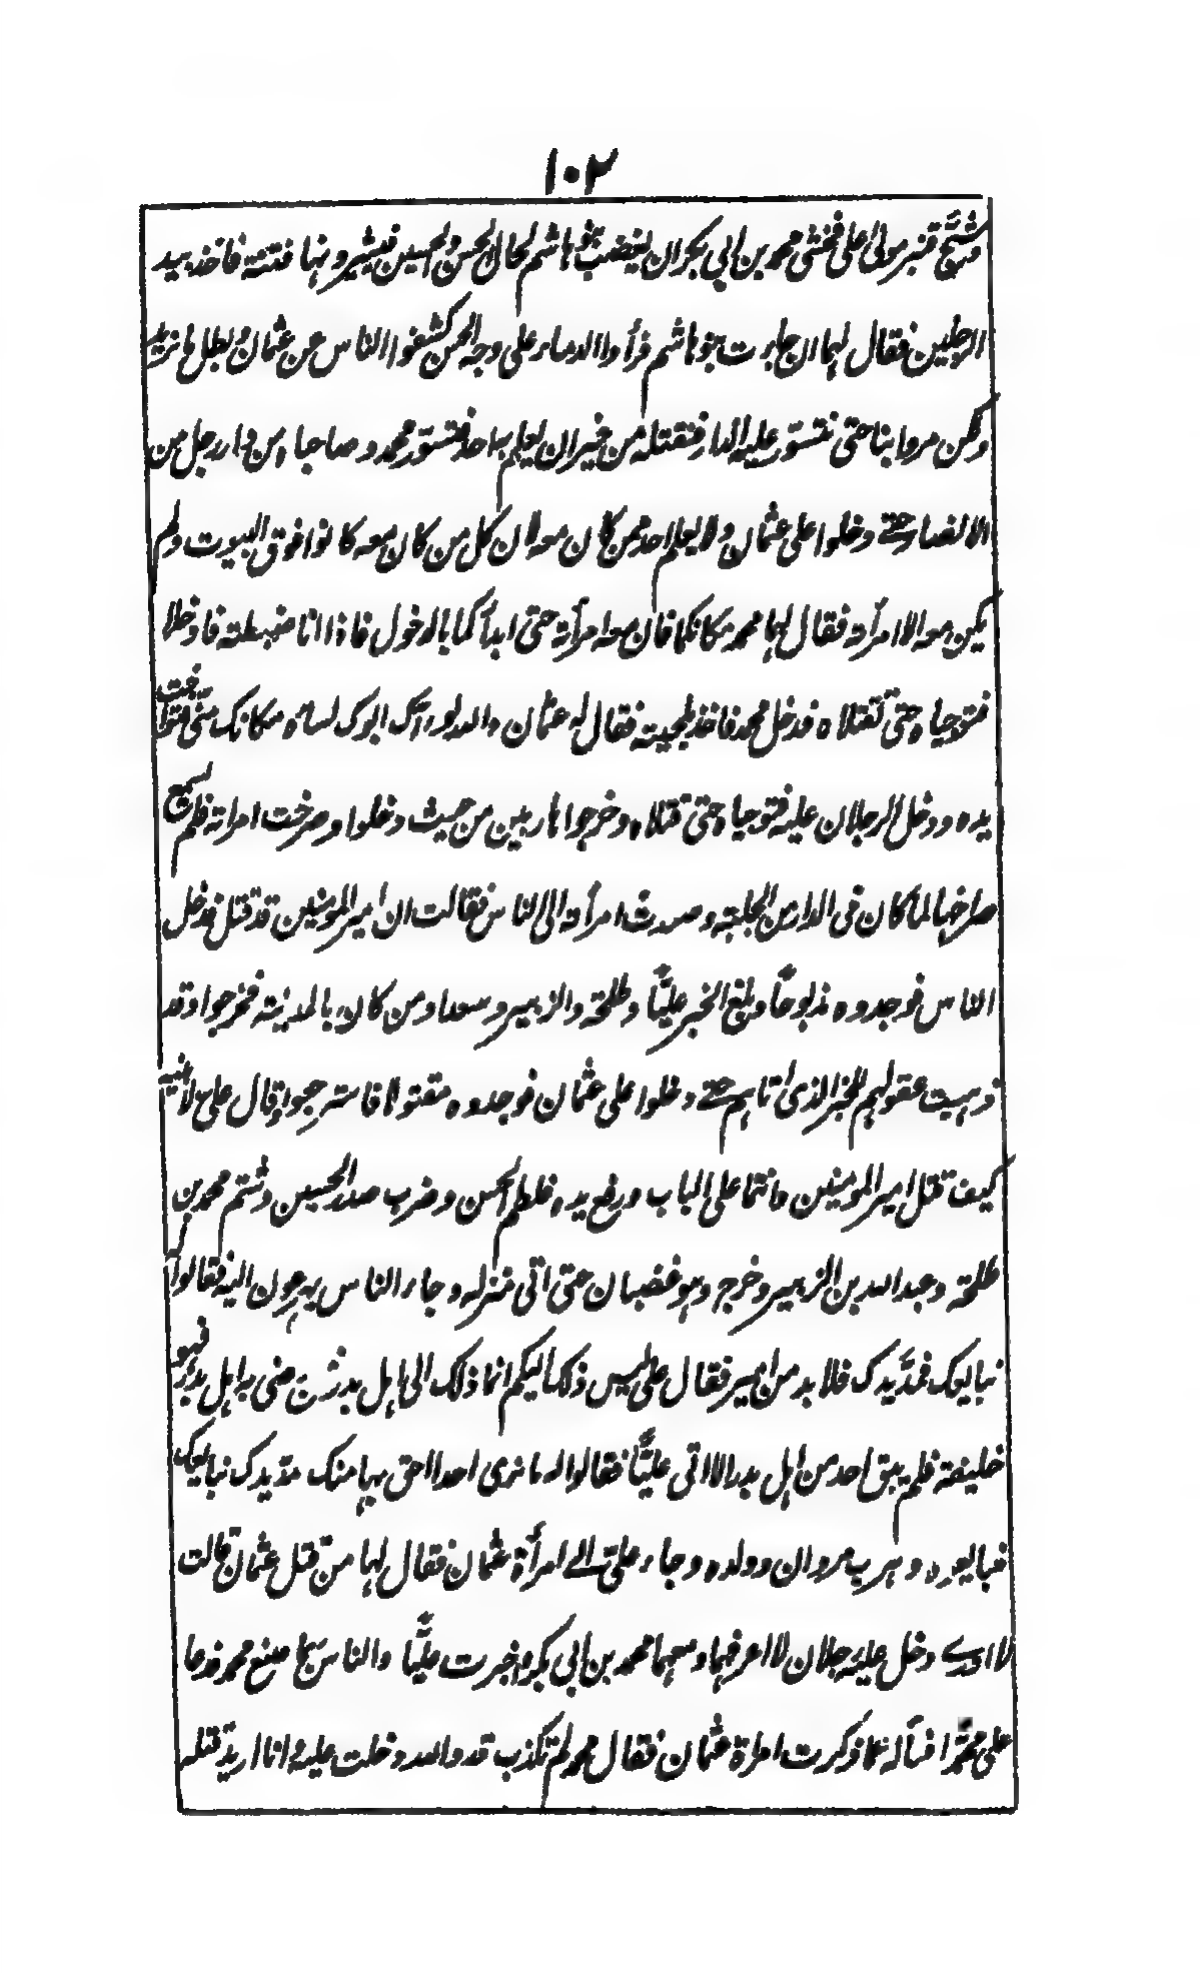 ١٠٢
وشجّ قنبر مولى علی فخشی محمد بن ابی بکر ان یغضب بنو ہاشم لحال الحسن والحسین فیثیرونہا فتنة فاخذ بید
الرجلین فقال لہما ان جاءت بنو ہاشم فرأوا الدماء علی وجہ الحسن کشفوا الناس عن عثمان وبطل ما نرید
ولکن مروا بنا حتی نتسوّر علیہ الدار فنقتلہ من غیر ان یعلم بہ احد فتسوّر محمد وصاحباہ من دار رجل من
الانصار حتے دخلوا علی عثمان ولا یعلم احد ممن کان معہ لان کل من کان معہ کانوا فوق البیوت ولم
یکن معہ الا امرأتہ فقال لہما محمد مکانکما فان معہ امرأتہ حتی ابدأکما بالدخول فاذا انا ضبطتہ فادخلا
فتوجیاہ حتی تقتلاہ فدخل محمد فاخذ بلحیتہ فقال لہ عثمان واللہ لو رآک ابوک لساءہ مکانک منّی فتراخت
یدہ ودخل الرجلان علیہ فتوجیاہ حتی قتلاہ وخرجوا ہاربین من حیث دخلوا وصرخت امرأتہ فلم یسمع
صراخہا لما کان فی الدار من الجلبة وصعدت امرأتہ الی الناس فقالت ان امیر المؤمنین قد قتل فدخل
الناس فوجدوہ مذبوحًا وبلغ الخبر علیًّا وطلحة والزبیر وسعدا ومن کان بالمدینة فخرجوا وقد
ذہبت عقولہم للخبر الذی اتاہم حتے دخلوا علی عثمان فوجدوہ مقتولا فاسترجعوا وقال علی لابنیہ
کیف قتل امیر المؤمنین وانتما علی الباب ورفع یدہ فلطم الحسن وضرب صدر الحسین وشتم محمد بن
طلحة وعبد اللہ بن الزبیر وخرج وہو غضبان حتی اتی منزلہ وجاء الناس یہرعون الیہ فقالوا
نبایعک فمدّ یدک فلا بد من امیر فقال علی لیس ذلک الیکم انما ذلک الی اہل بدر فمن رضی بہ اہل بدر فہو
خلیفة فلم یبق احد من اہل بدر الا اتی علیًّا فقالوا لہ ما نری احدا احق بہا منک مدّ یدک نبایعک
فبایعوہ وہرب مروان وولدہ وجاء علی الے امرأة عثمان فقال لہا من قتل عثمان قالت
لا ادرے دخل علیہ رجلان لا اعرفہما ومعہما محمد بن ابی بکر واخبرت علیًّا والناس بما صنع محمد فدعا
علی محمّدًا فسألہ عما ذکرت امرأة عثمان فقال محمد لم تکذب قد واللہ دخلت علیہ وانا ارید قتلہ